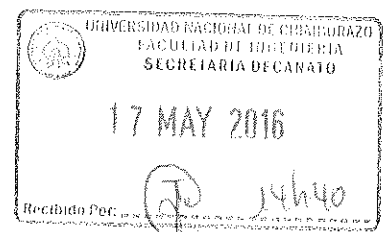 UNIVERSIDAD NACIONAL DE CHIMBORAZO
FACULTAD DE INGENIERIA
SECRETARIA DECANATO
17 MAY 2016
14h40
Recibido Por: